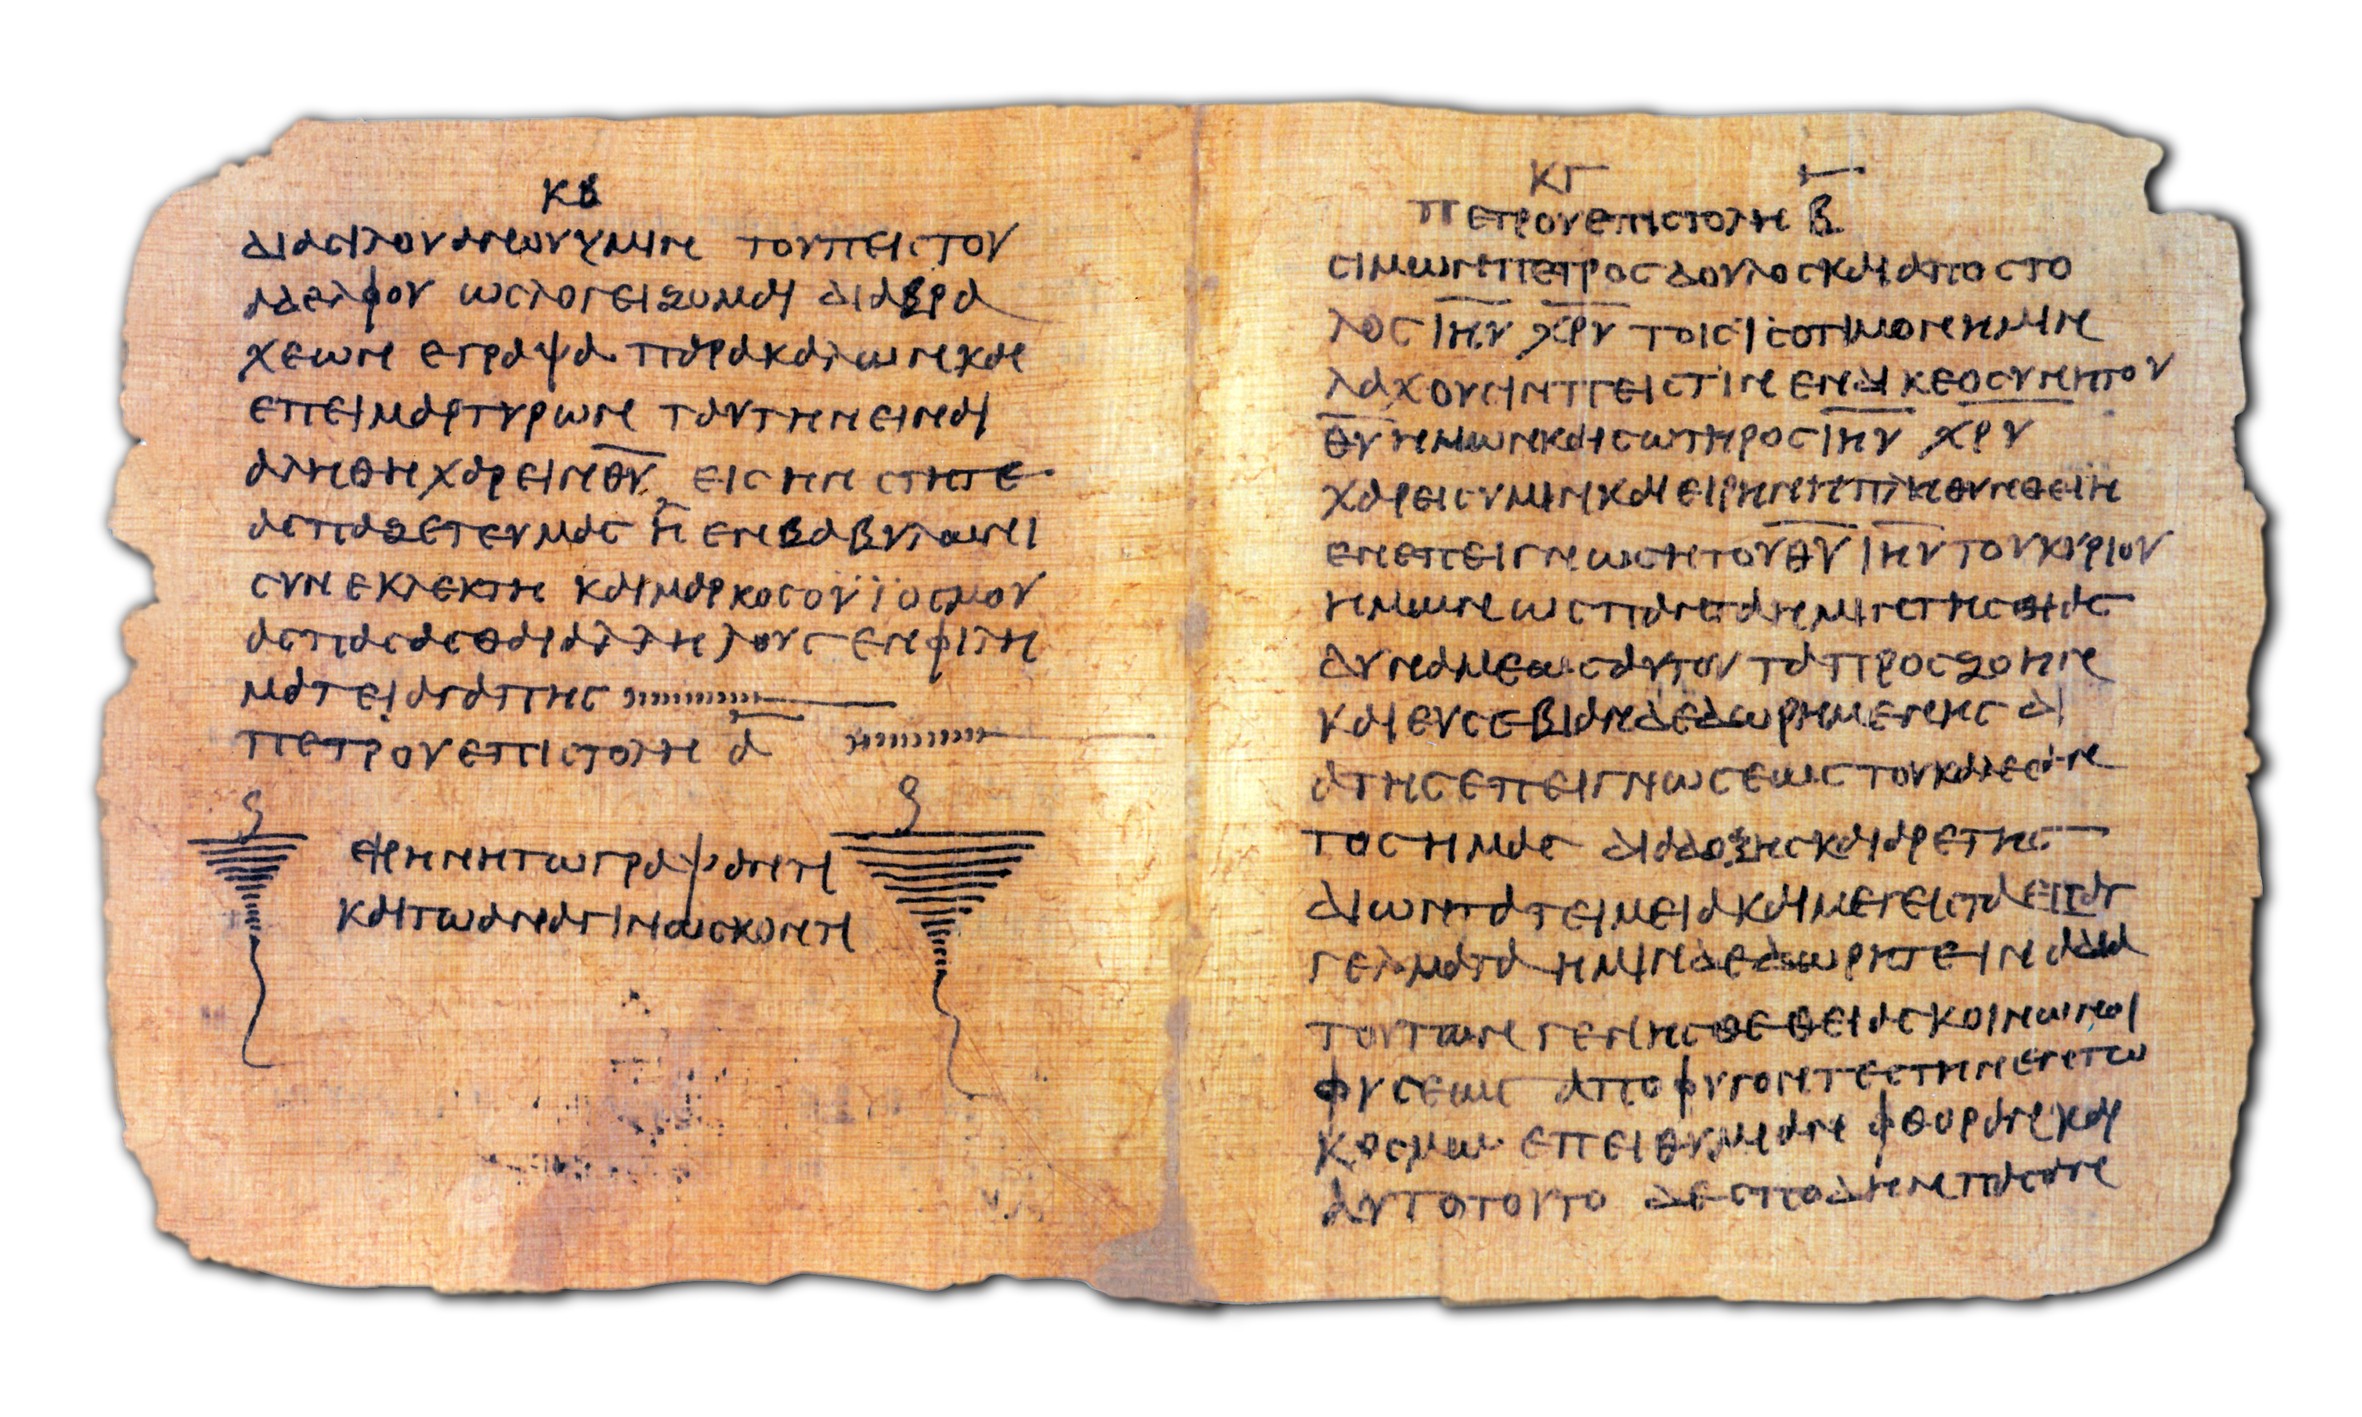 κβ
διασιλουανουυμιν τουπειστου
αδελφου ωσλογειζομαι διαβρα
χεων εγραψα παρακαλωνκαι
επειμαρτυρων ταυτηνειναι
αληθηχαρεινθ̅υ̅ εισην στητε
ασπαζετευμασ η ενβαβυλωνι
συνεκλεκτη καιμαρκοσουϊοσμου
ασπασασθαιαλληλουσ ενφιλη
ματειαγαπησ
πετρουεπιστολη α
ειρηνητωγραψαντι
καιτωαναγινωσκοντι
κγ
πετρουεπιστολη β
σιμωνπετροσδουλοσκαιαποστο
λοσι̅η̅υ̅ χ̅ρ̅υ̅ τοισϊσοτιμονημιν
λαχουσινπειστιν ενδικεοσυνητου
θ̅υ̅ημωνκαισωτηροσι̅η̅υ̅ χ̅ρ̅υ̅
χαρεισυμινκαιειρηνηπληθυνθειη
ενεπειγνωσητουθ̅υ̅ ι̅η̅υ̅ τουκυριου
ημων ωσπανταημιντησθιασ
δυναμεωσαυτου ταπροσζοην
καιευσεβιανδεδωρημενησ δι
ατησεπειγνωσεωσ τουκαλεσαν
τοσημασ διαδοξησκαιαρετησ
διωντατειμειακαιμεγεισταεπαγ
γελματα ημινδεδωρητεινα δια
τουτων γενησθεθειασκοινωνοι
φυσεωσ αποφυγοντεστηνεντω
κοσμω επειθυμιαν φθορανκαι
αυτοτουτο δεσποδηνπασαν